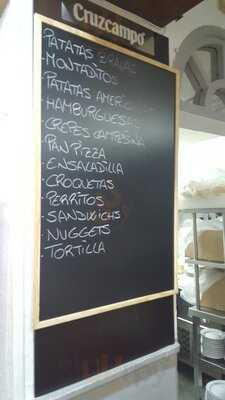 Cruzcampo
PATATAS BRAVAS
-MONTADITOS
PATATAS AMERICANAS
-HAMBURGUESAS
-CREPES CAMPESINA
-PAN PIZZA
-ENSALADILLA
-CROQUETAS
-PERRITOS
-SANDWICHS
-NUGGETS
-TORTILLA